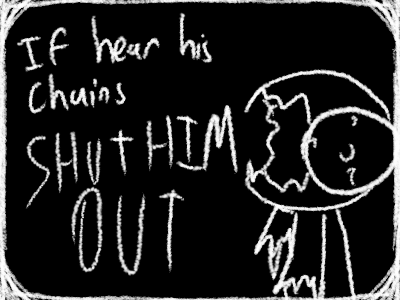 If hear his
Chains
SHUT HIM
OUT